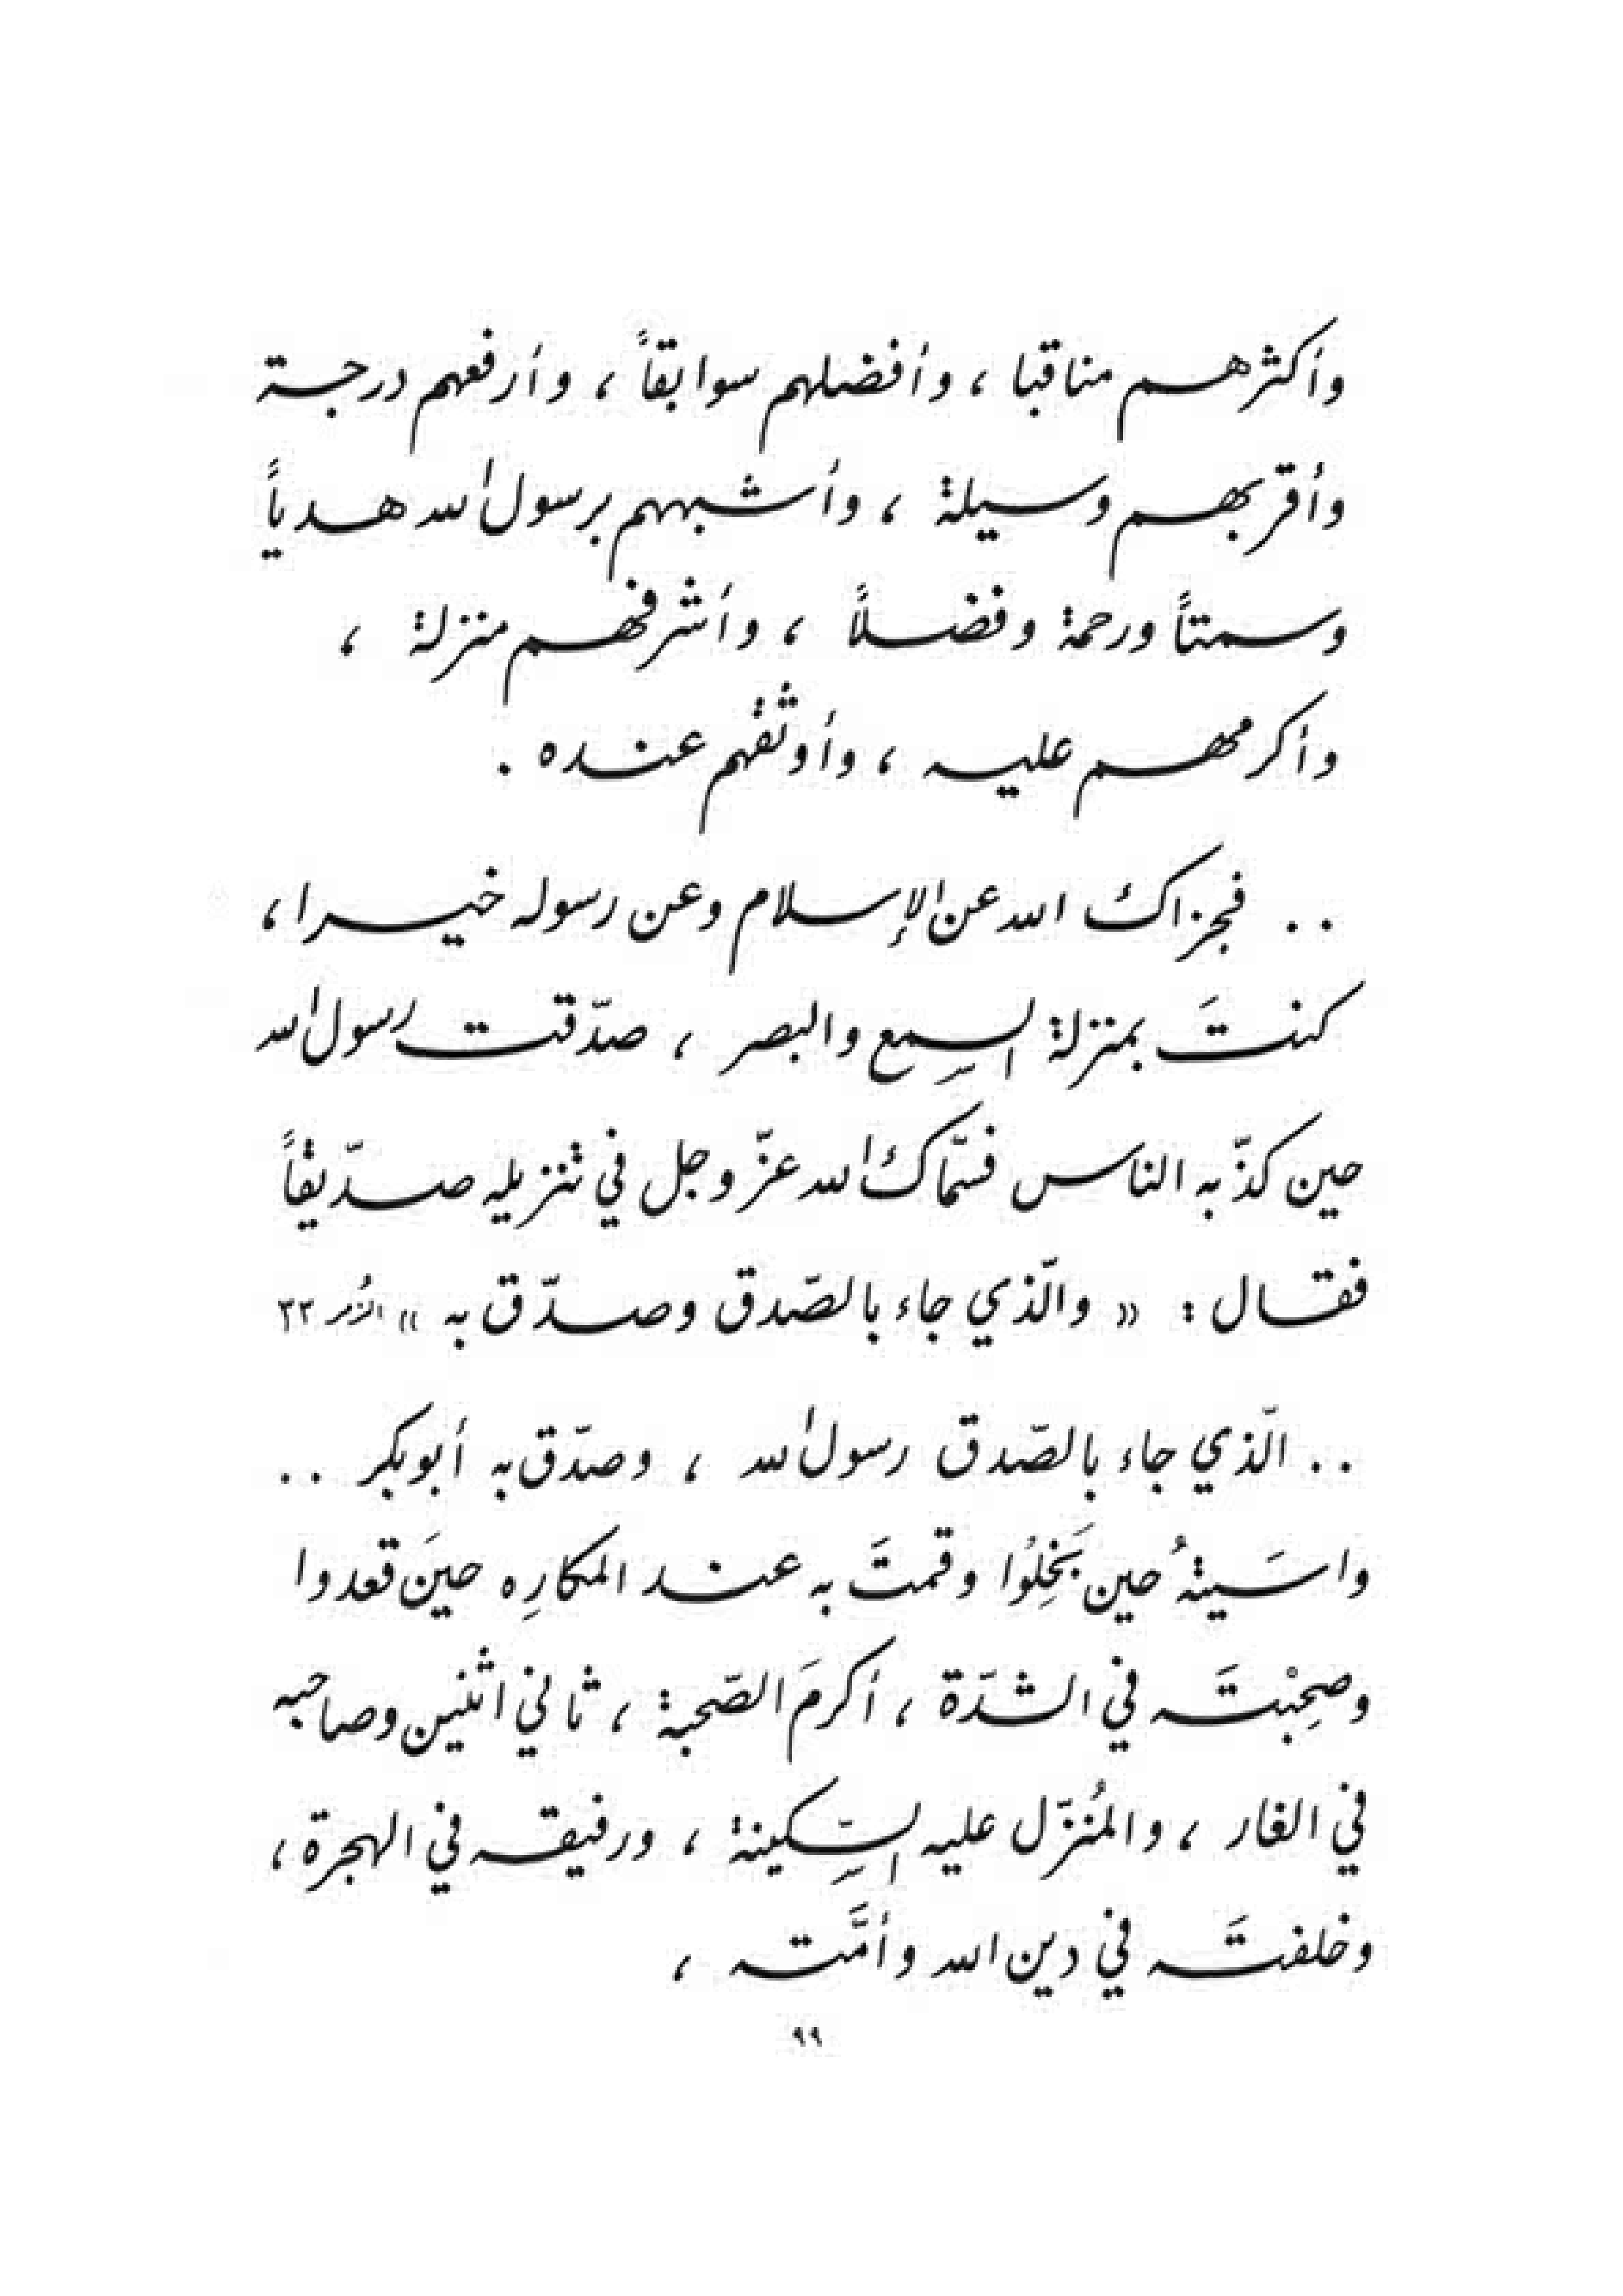 وأكثرهم مناقبا ، وأفضلهم سوابقاً ، وأرفعهم درجة
وأقربهم وسيلة ، وأشبههم برسول الله هدياً
وسمتاً ورحمة وفضلاً ، وأشرفهم منزلة ،
وأكرمهم عليه ، وأوثقهم عنده .
.. فجزاك الله عن الإسلام وعن رسوله خيرا ،
كنتَ بمنزلة السِّمع والبصر ، صدّقت رسول الله
حين كذّبه الناس فسمّاك الله عزّ وجل في تنزيله صدّيقاً
فقال : « والّذي جاء بالصّدق وصدّق به » الزُمر ٣٣
.. الّذي جاء بالصّدق رسول الله ، وصدّق به أبو بكر ..
واسَيتهُ حين بَخِلُوا وقمتَ به عند المكارِه حينَ قعدوا
وصحِبْتَه في الشدّة ، أكرمَ الصّحبة ، ثاني اثنين وصاحبه
في الغار ، والمُنزّل عليه السِّكينة ، ورفيقه في الهجرة ،
وخلفتَه في دين الله وأمَّته ،
٩٩